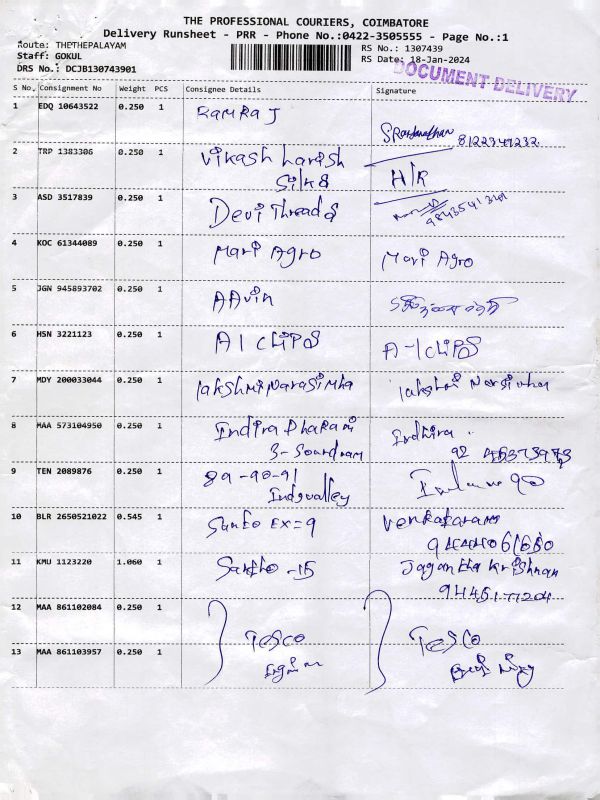 THE PROFESSIONAL COURIERS, COIMBATORE
Delivery Runsheet - PRR - Phone No.:0422-3505555 - Page No.:1
Route: THETHEPALAYAM
Staff: GOKUL
DRS No.: DCJB130743901
RS No.: 1307439
RS Date: 18-Jan-2024
DOCUMENT DELIVERY
S No. Consignment No Weight PCS Consignee Details Signature
1 EDQ 10643522 0.250 1 RAMRAJ
8122347232
2 TRP 1383306 0.250 1 Vikash harish
Silks H/R
3 ASD 3517839 0.250 1 Devi Threads
4 KOC 61344089 0.250 1 Mari Agro Mari Agro
5 JGN 945893702 0.250 1 AAvin
6 HSN 3221123 0.250 1 A1 CLIPS A-1 CLIPS
7 MDY 200033044 0.250 1 lakshmi Narasimha lakshmi
8 MAA 573104950 0.250 1 Indira Dharani
3-Soundram Indhira
9 TEN 2089876 0.250 1 89-90-91
Indsvalley
10 BLR 2650521022 0.545 1 EX=9
11 KMU 1123220 1.060 1 -15 Jagantha Krishnan
12 MAA 861102084 0.250 1 TESCO TESCO
13 MAA 861103957 0.250 1